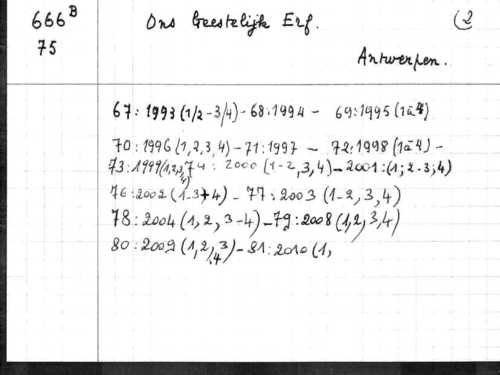 666 B Ons Geestelijk Erf. (2
75
Antwerpen.
67: 1993 (1/2-3/4) - 68: 1994 - 69: 1995 (1à4)
70: 1996 (1,2,3,4) - 71: 1997 - 72: 1998 (1à4) -
73: 1999 (1,2,3,4) 74: 2000 (1-2,3,4) - 2001: (1; 2-3; 4)
76: 2002 (1-3+4) - 77: 2003 (1-2,3,4)
78: 2004 (1,2,3-4) - 79: 2008 (1,2,3,4)
80: 2009 (1,2,3,4) - 81: 2010 (1,